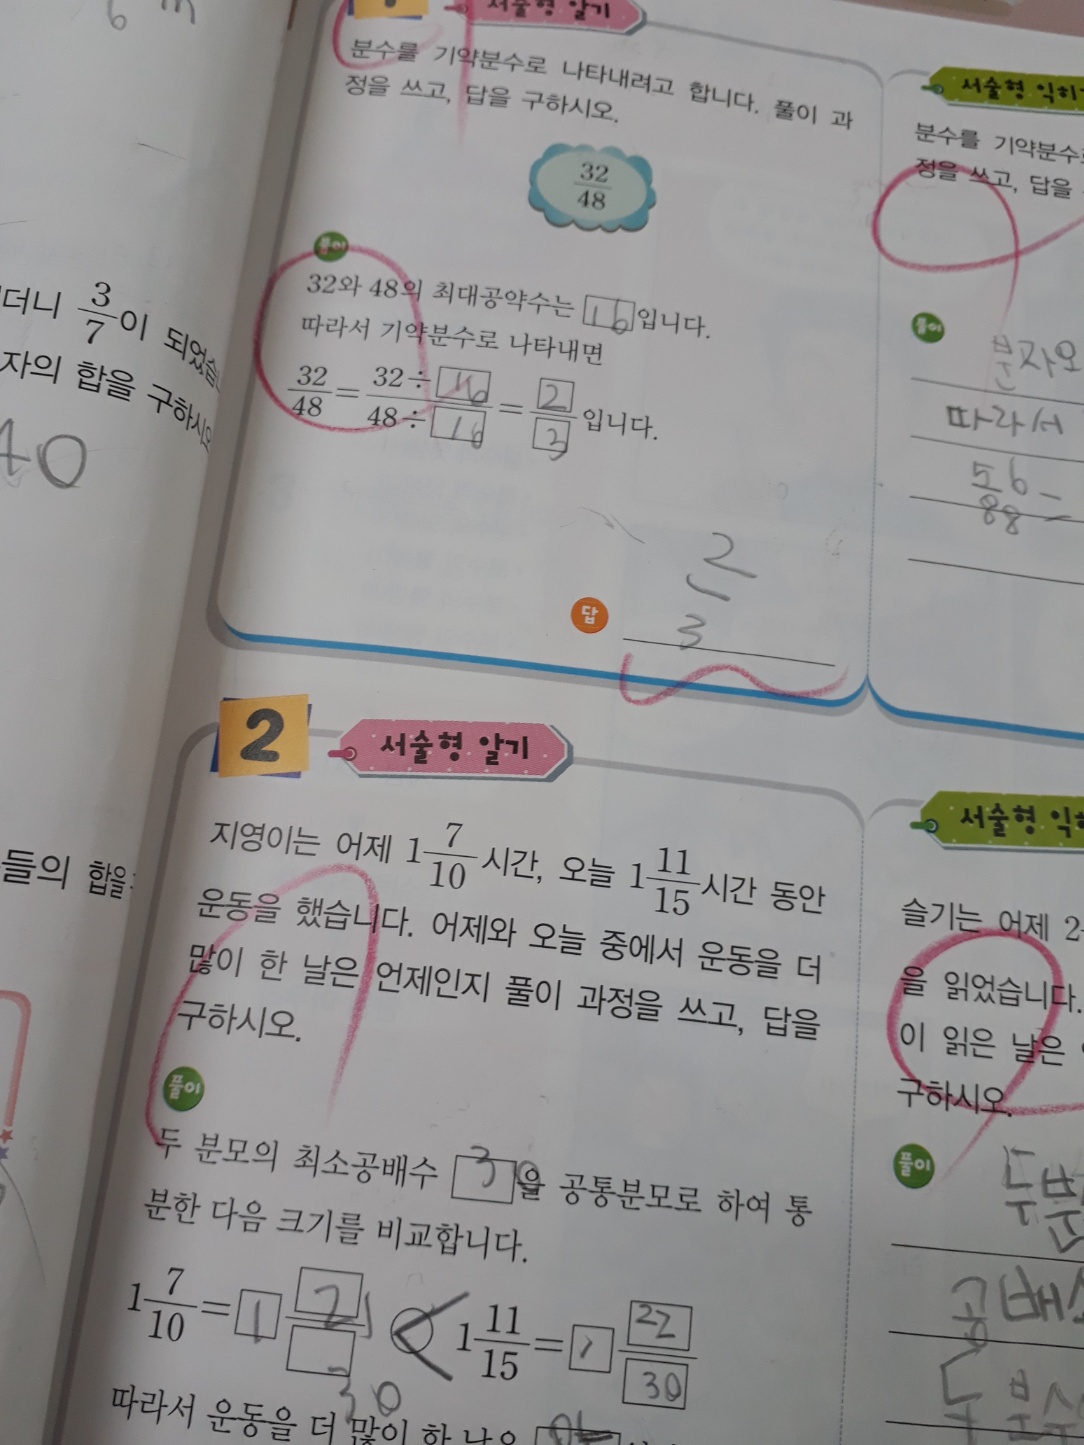 서술형 알기
분수를 기약분수로 나타내려고 합니다. 풀이 과
정을 쓰고, 답을 구하시오.
32/48
풀이
32와 48의 최대공약수는 16입니다.
따라서 기약분수로 나타내면
32/48 = 32÷16/48÷16 = 2/3 입니다.
답 2/3
서술형 익히
분수를 기약분수로
정을 쓰고, 답을
풀이
분자와
따라서
56/88 =
3/7이 되었습
자의 합을 구하시오
40
들의 합을
2 서술형 알기
지영이는 어제 1 7/10 시간, 오늘 1 11/15 시간 동안
운동을 했습니다. 어제와 오늘 중에서 운동을 더
많이 한 날은 언제인지 풀이 과정을 쓰고, 답을
구하시오.
풀이
두 분모의 최소공배수 30을 공통분모로 하여 통
분한 다음 크기를 비교합니다.
1 7/10 = 1 21/30 < 1 11/15 = 1 22/30
따라서 운동을 더 많이 한 날은
서술형 익
슬기는 어제 2
을 읽었습니다.
이 읽은 날은
구하시오.
풀이
두 분
공배수
두 분수